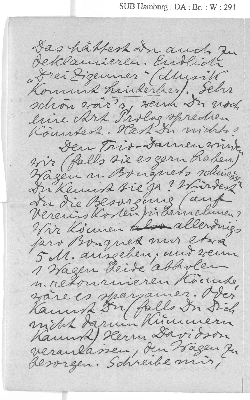 SUB Hamburg : DA : Br. : W : 291
Das hättest Du auch zu
deklamieren. Endlich
"Drei Zigeuner" (Musik
kommt hinterher). Sehr
schön wär's, wenn Du noch
eine Art Prolog sprechen
könntest. Hast Du nichts?
Den Trio-Damen würden
wir (falls sie es gern haben)
Wagen u. Bouquets
Du kennst sie ja! Würdest
Du die Besorgung (auf
Vereinskosten) übernehmen?
Wir können allerdings
pro Bouquet nur etwa
5 M. ausgeben, und wenn
1 Wagen beide abholen
u. retournieren könnte,
wäre es sparsamer. Oder
kannst Du (falls Du Dich
nicht darum kümmern
kannst) Herrn Davidson
veranlassen, den Wagen zu
besorgen. Schreibe mir,